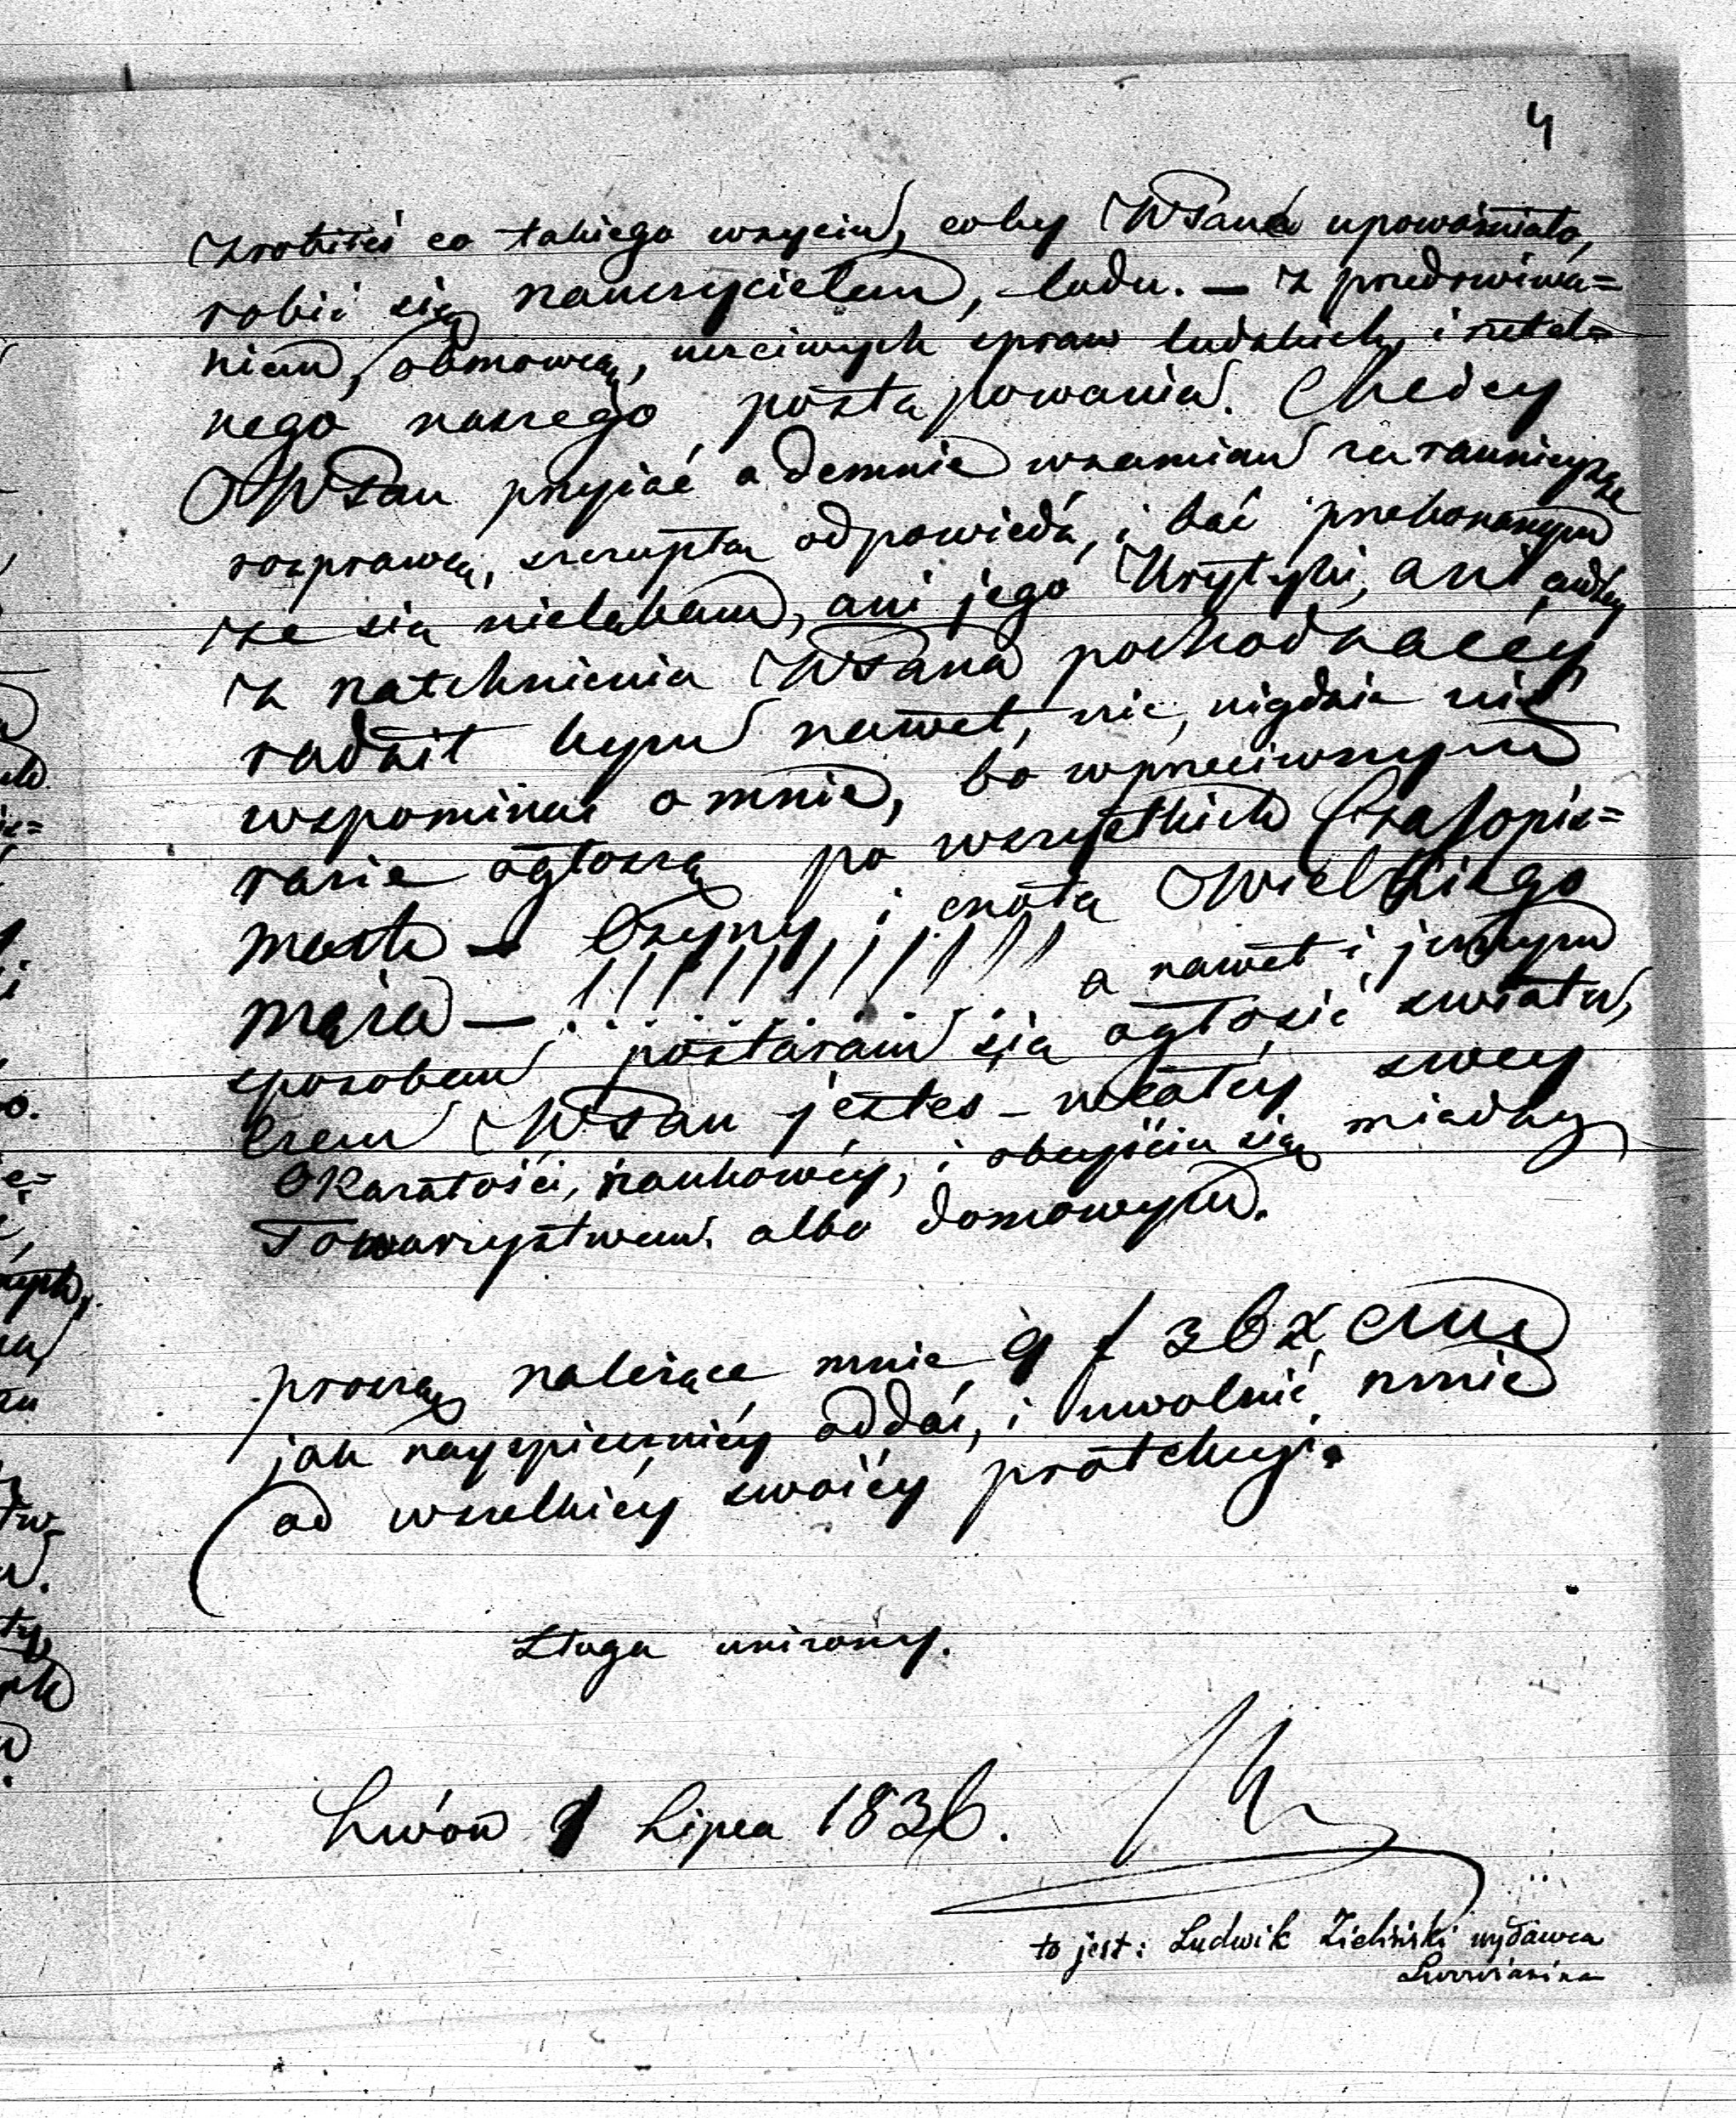 4
zrobiłeś co takiego w życiu, coby WPana upoważniało,
robić się nauczycielem, ludu. — z przedrwiwa=
niem, obmową, uczciwych spraw ludzkich, i retel=
nego naszego postąpowania. Chciey
WPan przyjąć odemnie wzamian za
rozprawę, szczupłą odpowiedź, i być przekonanym
że się nielękam, ani jego Krytyki, ani
z natchnienia WPana pochodzącey
radził bym nawet, nic, nigdzie nie
wspominać o mnie, bo wprzeciwnym
razie ogłoszę po wszystkich Czasopis=
mach — Czyny, i cnota Wielkiego
męża — !!!!!!!!!!!! a nawet i innym
sposobem postaram się ogłosić światu,
czem WPan jesteś — w całéy swey
Okazałości, naukowéy, i obeyściu się między
Towarzystwem. albo domowym.
proszę należące mnie 9 f 36 x CMu
jak nayspiesznéy oddać, i uwolnić mnie
od wszelkiéy swoiéy protekcyi.
Sługa uniżony.
Lwów 1 Lipca 1836.
to jest: Ludwik Zieliński wydawca
Lwowianina